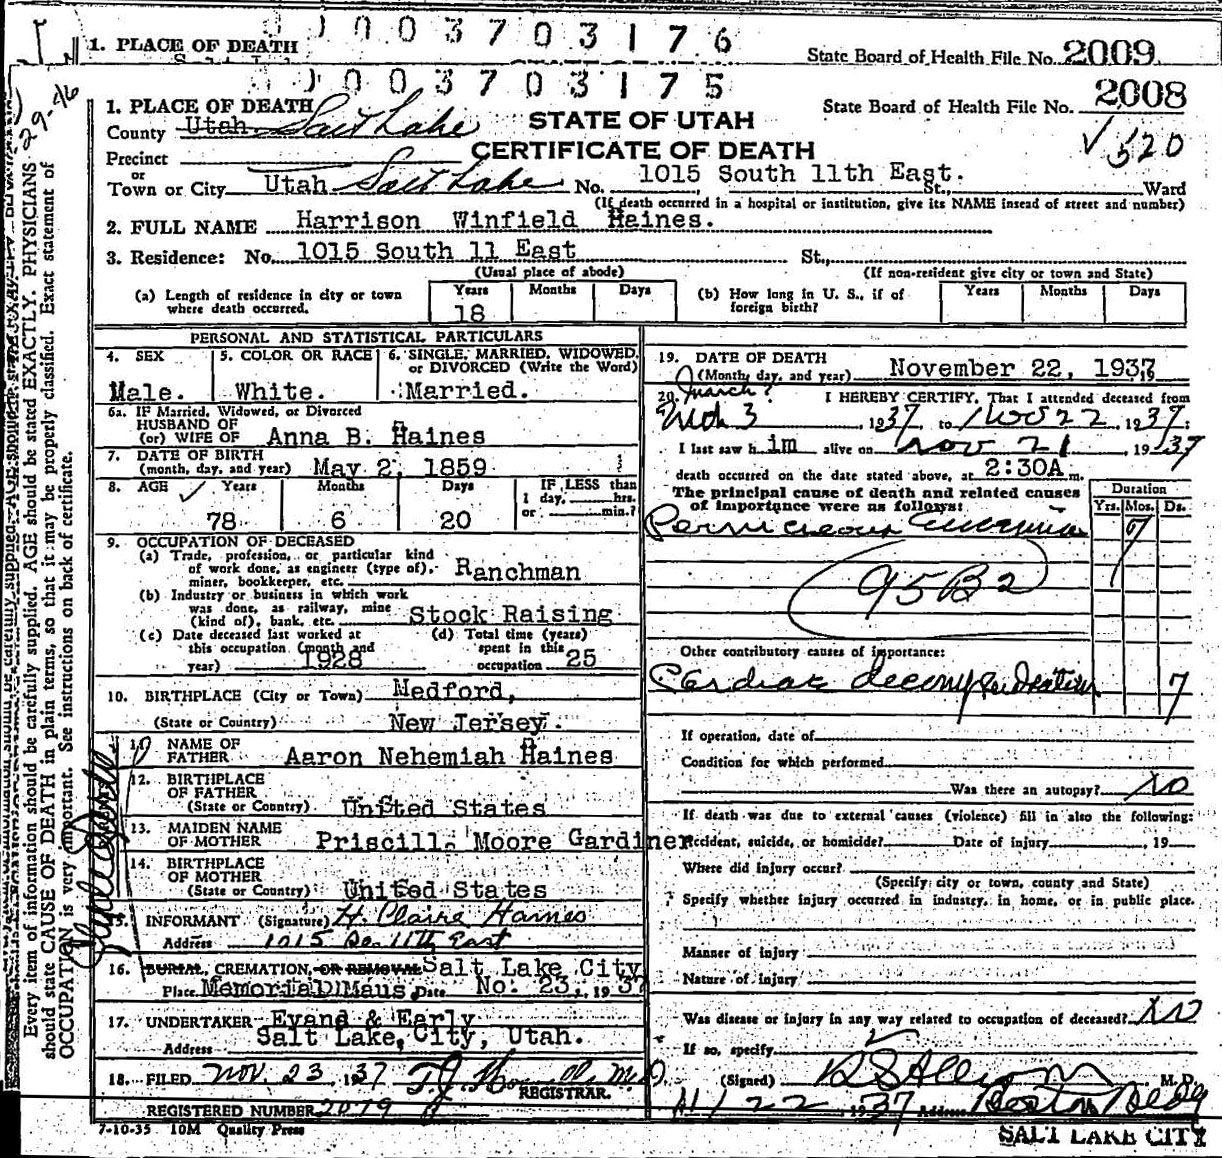 0 0 0 3 7 0 3 1 7 6
1. PLACE OF DEATH
State Board of Health File No. 2009
0 0 0 3 7 0 3 1 7 5
1. PLACE OF DEATH
State Board of Health File No. 2008
County Utah Salt Lake
STATE OF UTAH
√ 520
Precinct
CERTIFICATE OF DEATH
or
Town or City Utah Salt Lake No. 1015 South 11th East. St., Ward
(If death occurred in a hospital or institution, give its NAME insead of street and number)
2. FULL NAME Harrison Winfield Haines.
3. Residence: No. 1015 South 11 East St.,
(Usual place of abode) (If non-resident give city or town and State)
(a) Length of residence in city or town where death occurred. Years 18 Months Days
(b) How long in U. S., if of foreign birth? Years Months Days
PERSONAL AND STATISTICAL PARTICULARS
4. SEX Male.
5. COLOR OR RACE White.
6. SINGLE, MARRIED, WIDOWED, or DIVORCED (Write the Word) Married.
6a. IF Married, Widowed, or Divorced
HUSBAND OF
(or) WIFE OF Anna B. Haines
7. DATE OF BIRTH
(month, day, and year) May 2, 1859
8. AGE Years 78 Months 6 Days 20
IF LESS than
1 day, hrs.
or min.?
9. OCCUPATION OF DECEASED
(a) Trade, profession, or particular kind
of work done, as engineer (type of),
miner, bookkeeper, etc. Ranchman
(b) Industry or business in which work
was done, as railway, mine
(kind of), bank, etc. Stock Raising
(c) Date deceased last worked at
this occupation (month and
year) 1928
(d) Total time (years)
spent in this
occupation 25
10. BIRTHPLACE (City or Town) Medford,
(State or Country) New Jersey.
11. NAME OF
FATHER Aaron Nehemiah Haines
12. BIRTHPLACE
OF FATHER
(State or Country) United States
13. MAIDEN NAME
OF MOTHER Priscill. Moore Gardiner
14. BIRTHPLACE
OF MOTHER
(State or Country) United States
15. INFORMANT (Signature) H. Claire Haines
Address 1015 So. 11th East
16. BURIAL, CREMATION, OR REMOVAL Salt Lake City
Place Memorial Maus. Date No. 23, 1937
17. UNDERTAKER Evand & Early
Address Salt Lake, City, Utah.
18. FILED Nov. 23 1937
REGISTRAR.
REGISTERED NUMBER 2079
7-10-35 10M Quality Press
19. DATE OF DEATH
(Month, day, and year) November 22, 1937
March?
20. I HEREBY CERTIFY, That I attended deceased from
Mch 3 1937 to Nov 22, 1937;
I last saw h im alive on Nov 21, 1937
death occurred on the date stated above, at 2:30A m.
The principal cause of death and related causes
of importance were as follows:
Duration
Yrs. Mos. Ds.
Pernicious Anaemia
95B2
Other contributory causes of importance:
Cardiac decompensation 7
If operation, date of
Condition for which performed
Was there an autopsy? No
If death was due to external causes (violence) fill in also the following:
Accident, suicide, or homicide? Date of injury , 19
Where did injury occur?
(Specify city or town, county and State)
Specify whether injury occurred in industry, in home, or in public place.
Manner of injury
Nature of injury
Was disease or injury in any way related to occupation of deceased? No
If so, specify
(Signed) R S Allison M. D.
11/22 1937 Address Boston Bldg
SALT LAKE CITY
Every item of information should be carefully supplied. AGE should be stated EXACTLY. PHYSICIANS
should state CAUSE OF DEATH in plain terms, so that it may be properly classified. Exact statement of
OCCUPATION is very important. See instructions on back of certificate.